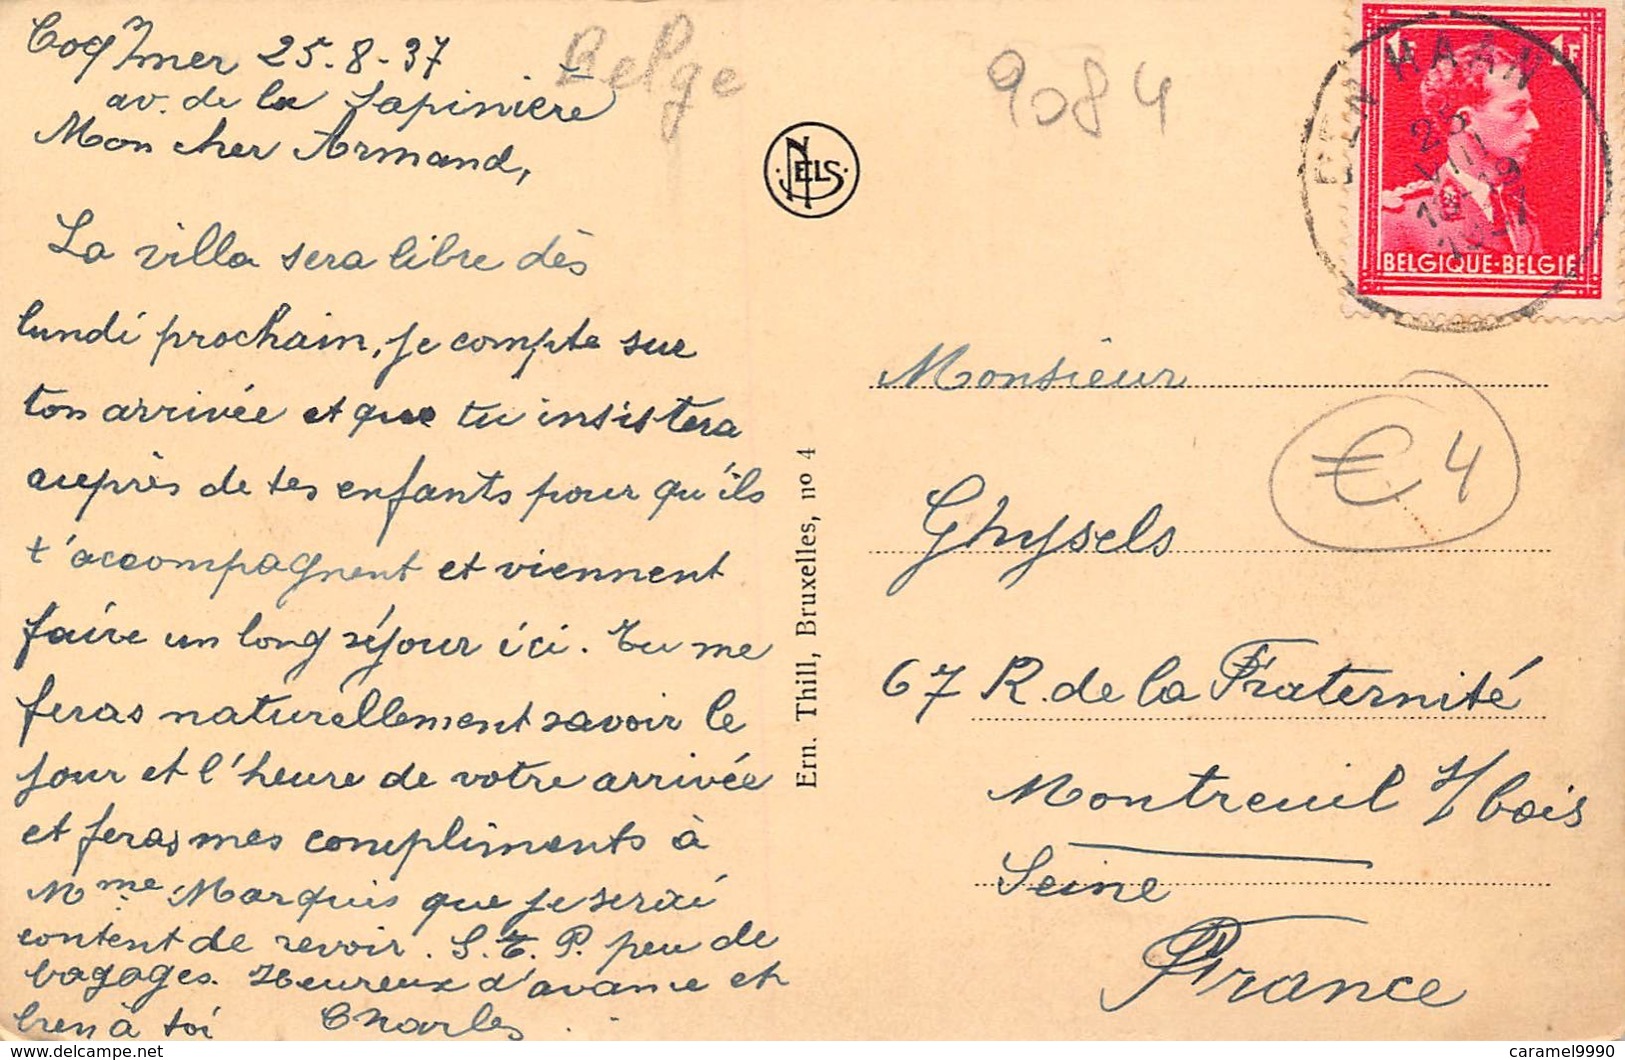 Coq s/mer 25-8-37
av. de la Sapinière
Mon cher Armand,
La villa sera libre dès
lundi prochain, je compte sur
ton arrivée et que tu insistera
auprès de tes enfants pour qu'ils
t'accompagnent et viennent
faire un long séjour ici. Tu me
feras naturellement savoir le
jour et l'heure de votre arrivée
et feras mes compliments à
Mme Marquis que je serai
content de revoir. S.T.P. peu de
bagages. Heureux d'avance et
bien à toi Charles
Belge
9084
NELS
Ern. Thill, Bruxelles, no 4
DEN HAAN
25
VIII
18-19
1937
1F 1F
BELGIQUE-BELGIE
Monsieur
€ 4
Ghysels
67 R. de la Fraternité
Montreuil s/bois
Seine
France
delcampe.net
caramel9990